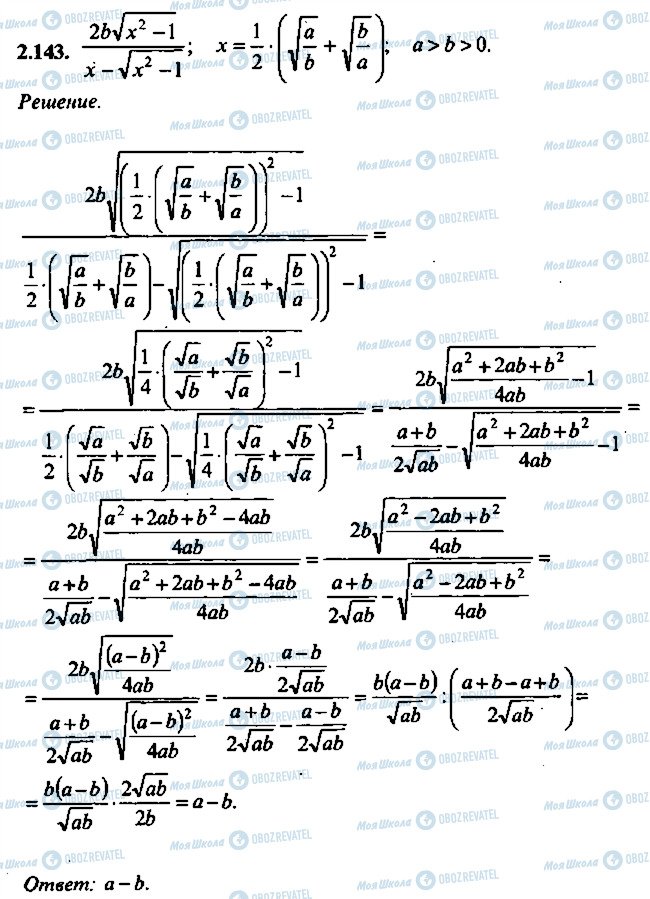 2.143. \frac{2b\sqrt{x^2-1}}{x-\sqrt{x^2-1}}; x=\frac{1}{2}\cdot\left(\sqrt{\frac{a}{b}}+\sqrt{\frac{b}{a}}\right); a>b>0.
Решение.
\frac{2b\sqrt{\left(\frac{1}{2}\cdot\left(\sqrt{\frac{a}{b}}+\sqrt{\frac{b}{a}}\right)\right)^2-1}}{\frac{1}{2}\cdot\left(\sqrt{\frac{a}{b}}+\sqrt{\frac{b}{a}}\right)-\sqrt{\left(\frac{1}{2}\cdot\left(\sqrt{\frac{a}{b}}+\sqrt{\frac{b}{a}}\right)\right)^2-1}}=
=\frac{2b\sqrt{\frac{1}{4}\cdot\left(\frac{\sqrt{a}}{\sqrt{b}}+\frac{\sqrt{b}}{\sqrt{a}}\right)^2-1}}{\frac{1}{2}\cdot\left(\frac{\sqrt{a}}{\sqrt{b}}+\frac{\sqrt{b}}{\sqrt{a}}\right)-\sqrt{\frac{1}{4}\cdot\left(\frac{\sqrt{a}}{\sqrt{b}}+\frac{\sqrt{b}}{\sqrt{a}}\right)^2-1}}=\frac{2b\sqrt{\frac{a^2+2ab+b^2}{4ab}-1}}{\frac{a+b}{2\sqrt{ab}}-\sqrt{\frac{a^2+2ab+b^2}{4ab}-1}}=
=\frac{2b\sqrt{\frac{a^2+2ab+b^2-4ab}{4ab}}}{\frac{a+b}{2\sqrt{ab}}-\sqrt{\frac{a^2+2ab+b^2-4ab}{4ab}}}=\frac{2b\sqrt{\frac{a^2-2ab+b^2}{4ab}}}{\frac{a+b}{2\sqrt{ab}}-\sqrt{\frac{a^2-2ab+b^2}{4ab}}}=
=\frac{2b\sqrt{\frac{(a-b)^2}{4ab}}}{\frac{a+b}{2\sqrt{ab}}-\sqrt{\frac{(a-b)^2}{4ab}}}=\frac{2b\cdot\frac{a-b}{2\sqrt{ab}}}{\frac{a+b}{2\sqrt{ab}}-\frac{a-b}{2\sqrt{ab}}}=\frac{b(a-b)}{\sqrt{ab}}:\left(\frac{a+b-a+b}{2\sqrt{ab}}\right)=
=\frac{b(a-b)}{\sqrt{ab}}\cdot\frac{2\sqrt{ab}}{2b}=a-b.
Ответ: a-b.
Моя Школа OBOZREVATEL